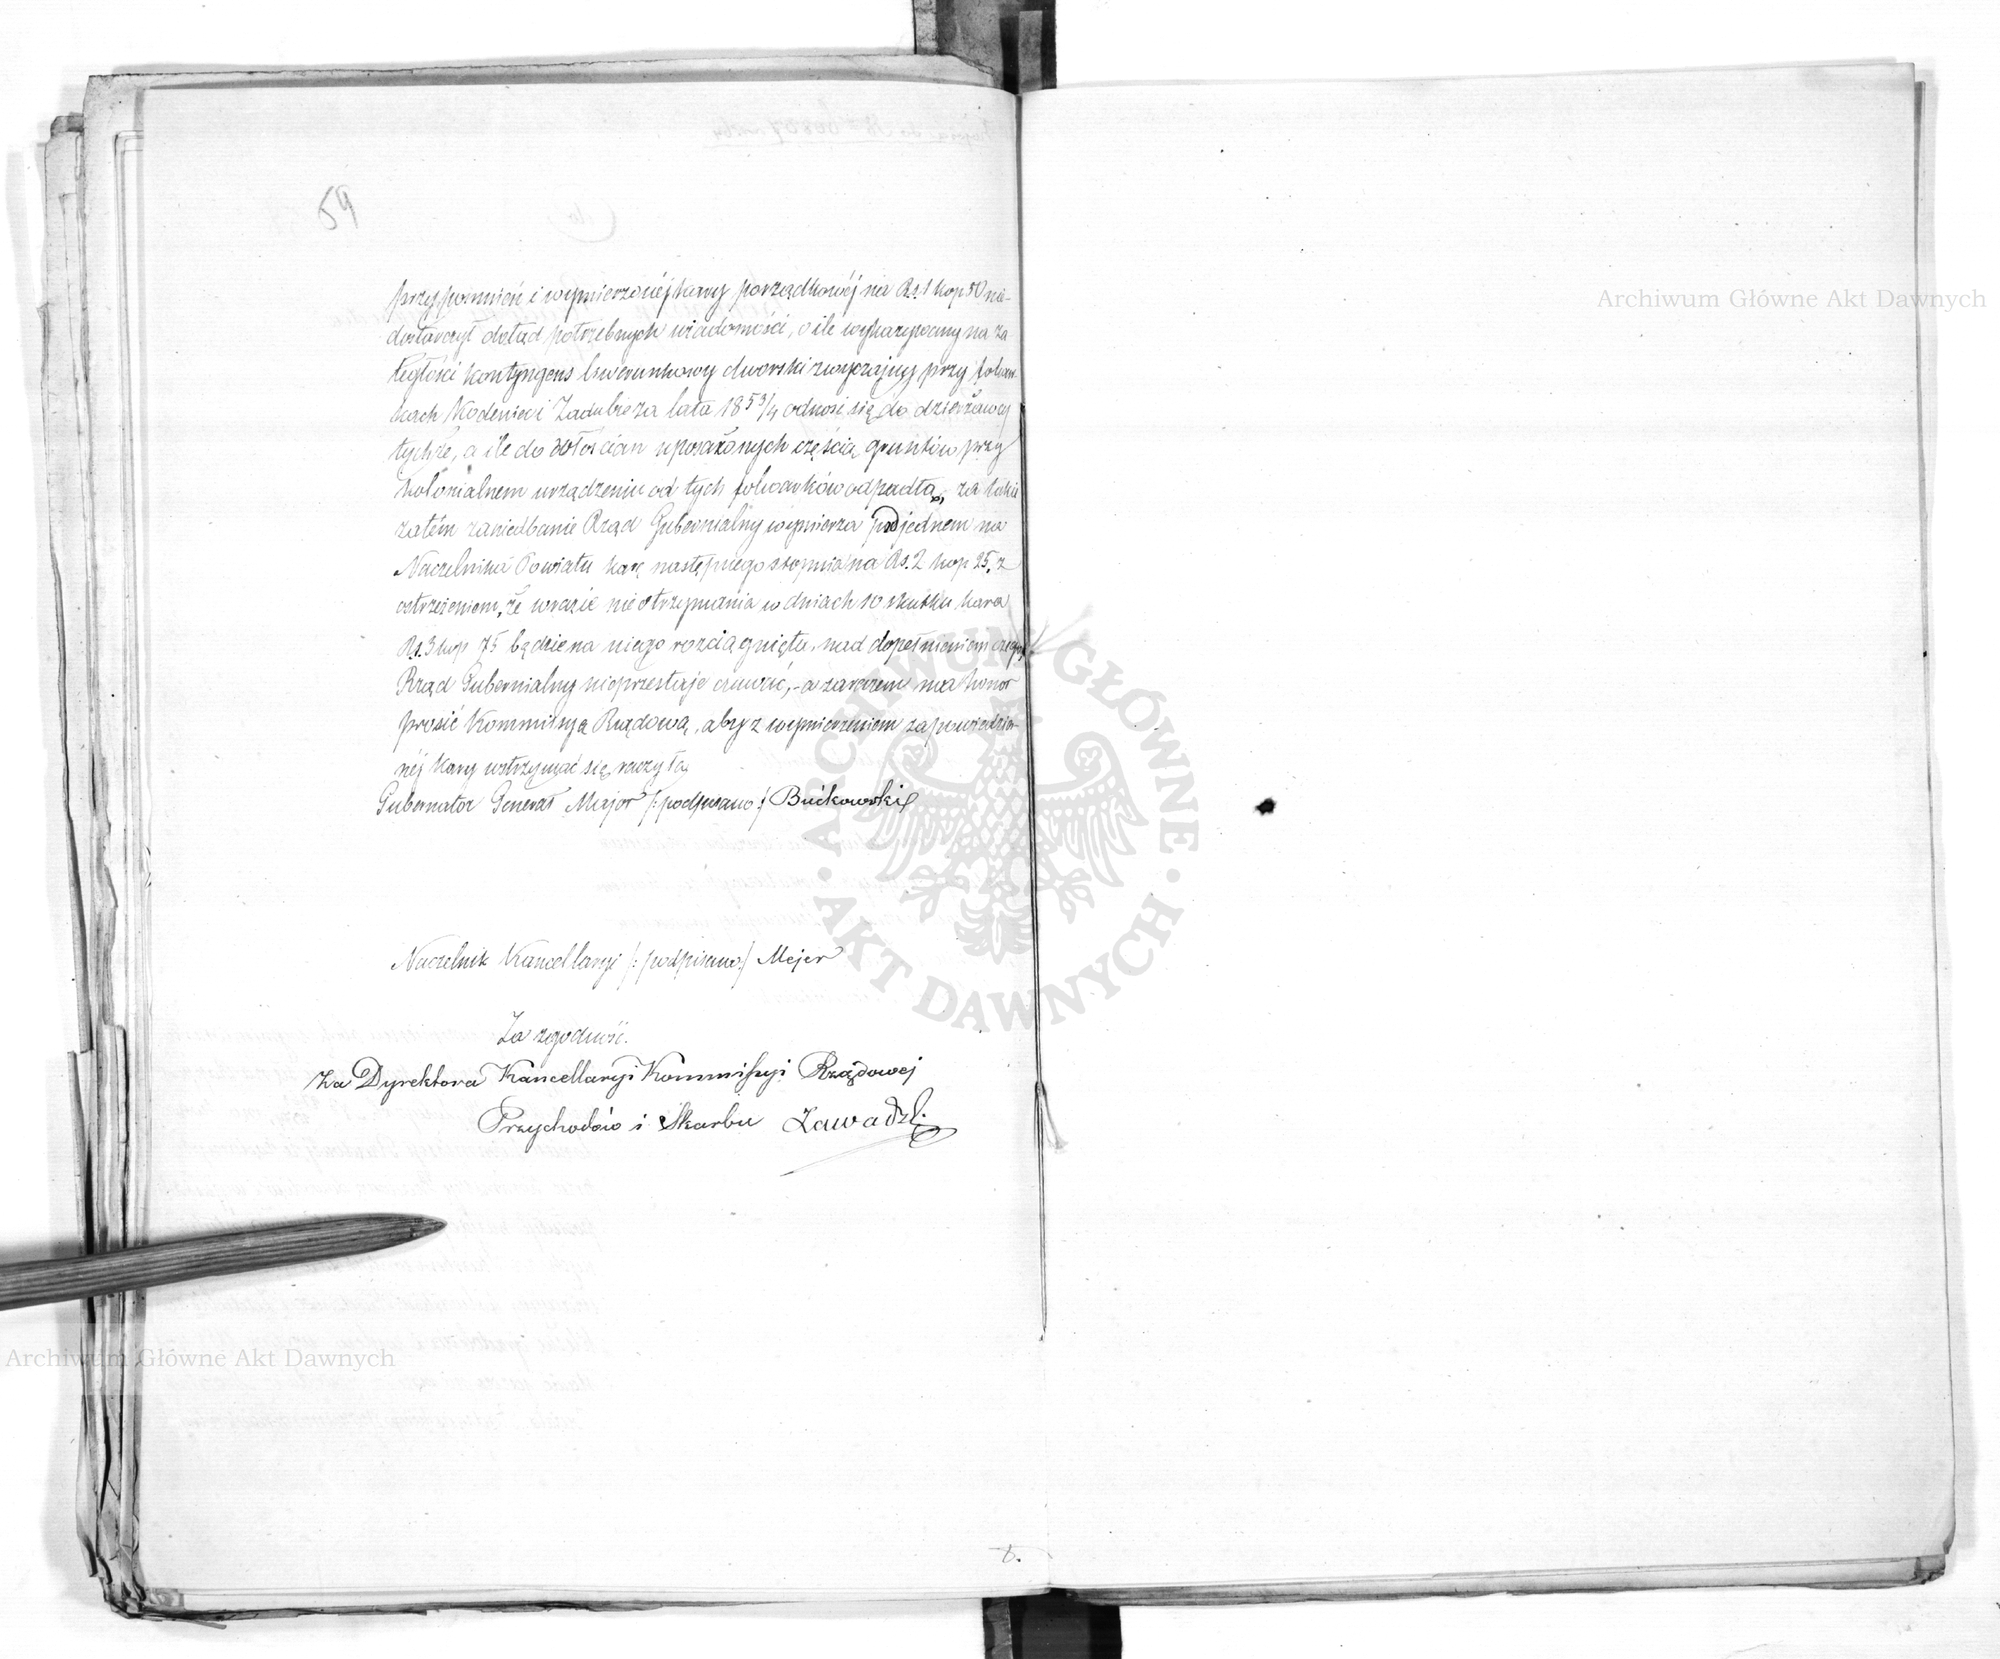 59
przypomnień i wymierzonéj kary porządkowéj na Rs. 1 kop 50 nie-
dostarczył dotąd potrzebnych wiadomości, o ile wykazywany na za
ległości kontyngens liwerunkowy dworski zwyczajny przy folwar-
kach Kodeniec i Zadubreza lata 18 53/4 odnosi się do dzierżawcy
tychże, a ile do Włościan uposażonych częścią gruntów przy
kolonialnem urządzeniu od tych folwarków odpadłą, za takie
zatém zaniedbanie Rząd Gubernialny wymierza pod jednem na
Naczelnika Powiatu karę następnego stopnia na Rs. 2 kop 25, z
ostrzeżeniem, że w razie nieotrzymania w dniach 10 skutku kara
Rs. 3 kop 75 będzie na niego rozciągniętą, nad dopełnieniem czego
Rząd Gubernialny nieprzestaje czuwać, - a zarazem ma honor
prosić Kommissyą Rządową, aby z wymierzeniem zapowiedzia-
néj kary wstrzymać się raczyła
Gubernator Generał Major /: podpisano :/ Bućkowski
Naczelnik Kancellaryi /: podpisano :/ Mejer
Za zgodność.
za Dyrektora Kancellaryi Kommissyi Rządowej
Przychodów i Skarbu Zawadzki
Archiwum Główne Akt Dawnych
Archiwum Główne Akt Dawnych
ARCHIWUM GŁÓWNE AKT DAWNYCH